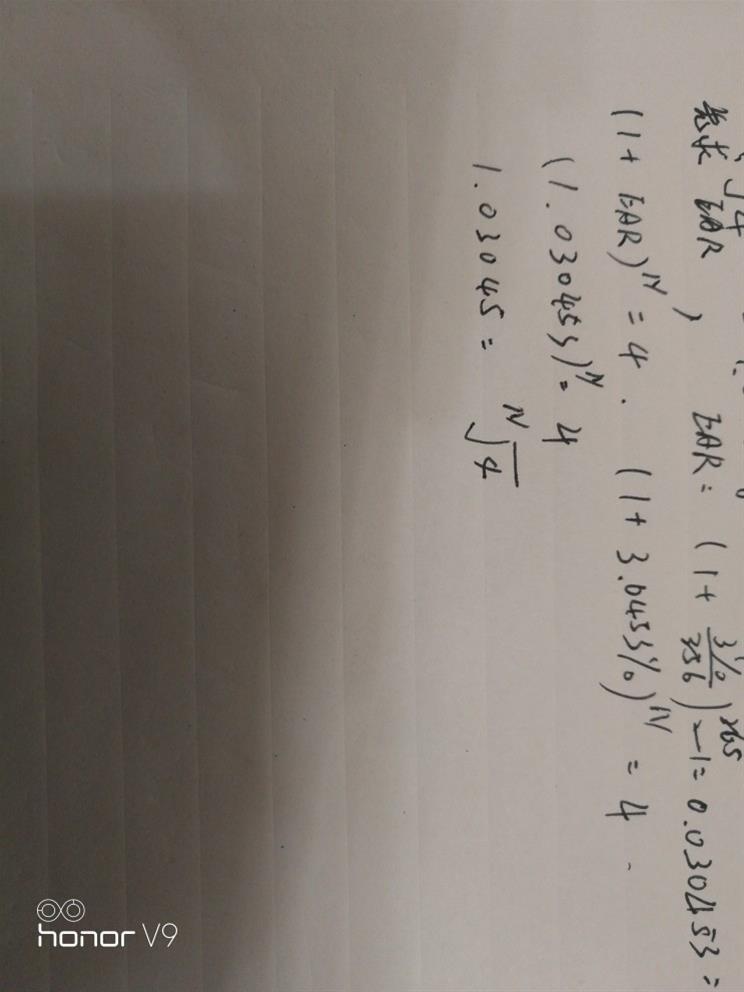 √4
先求 EAR, EAR = (1 + 3%/356)^365 - 1 = 0.030453 =
(1 + EAR)^N = 4. (1 + 3.0453%)^N = 4.
(1.030453)^N = 4
1.03045 = ^N√4
honor V9